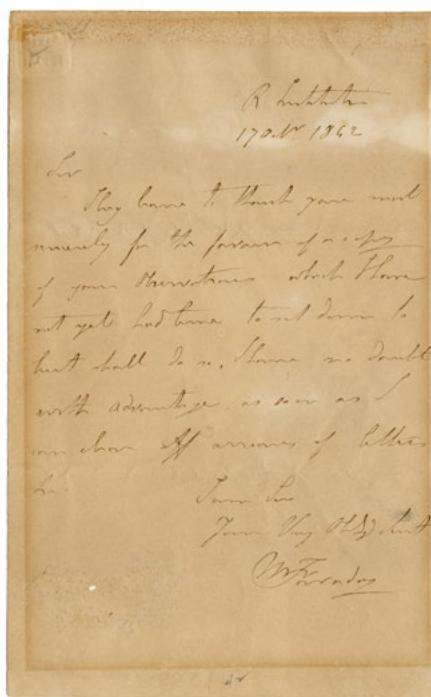 R Institute
17 Oct 1842
Sir
I beg leave to thank you most
sincerely for the favour of a copy
of your Observations which I have
not yet had time to sit down to
but shall do so, I have no doubt
with advantage, as soon as I
can clear off arrears of letters
&c.
I am Sir
Your Very Obdt Servt
M Faraday